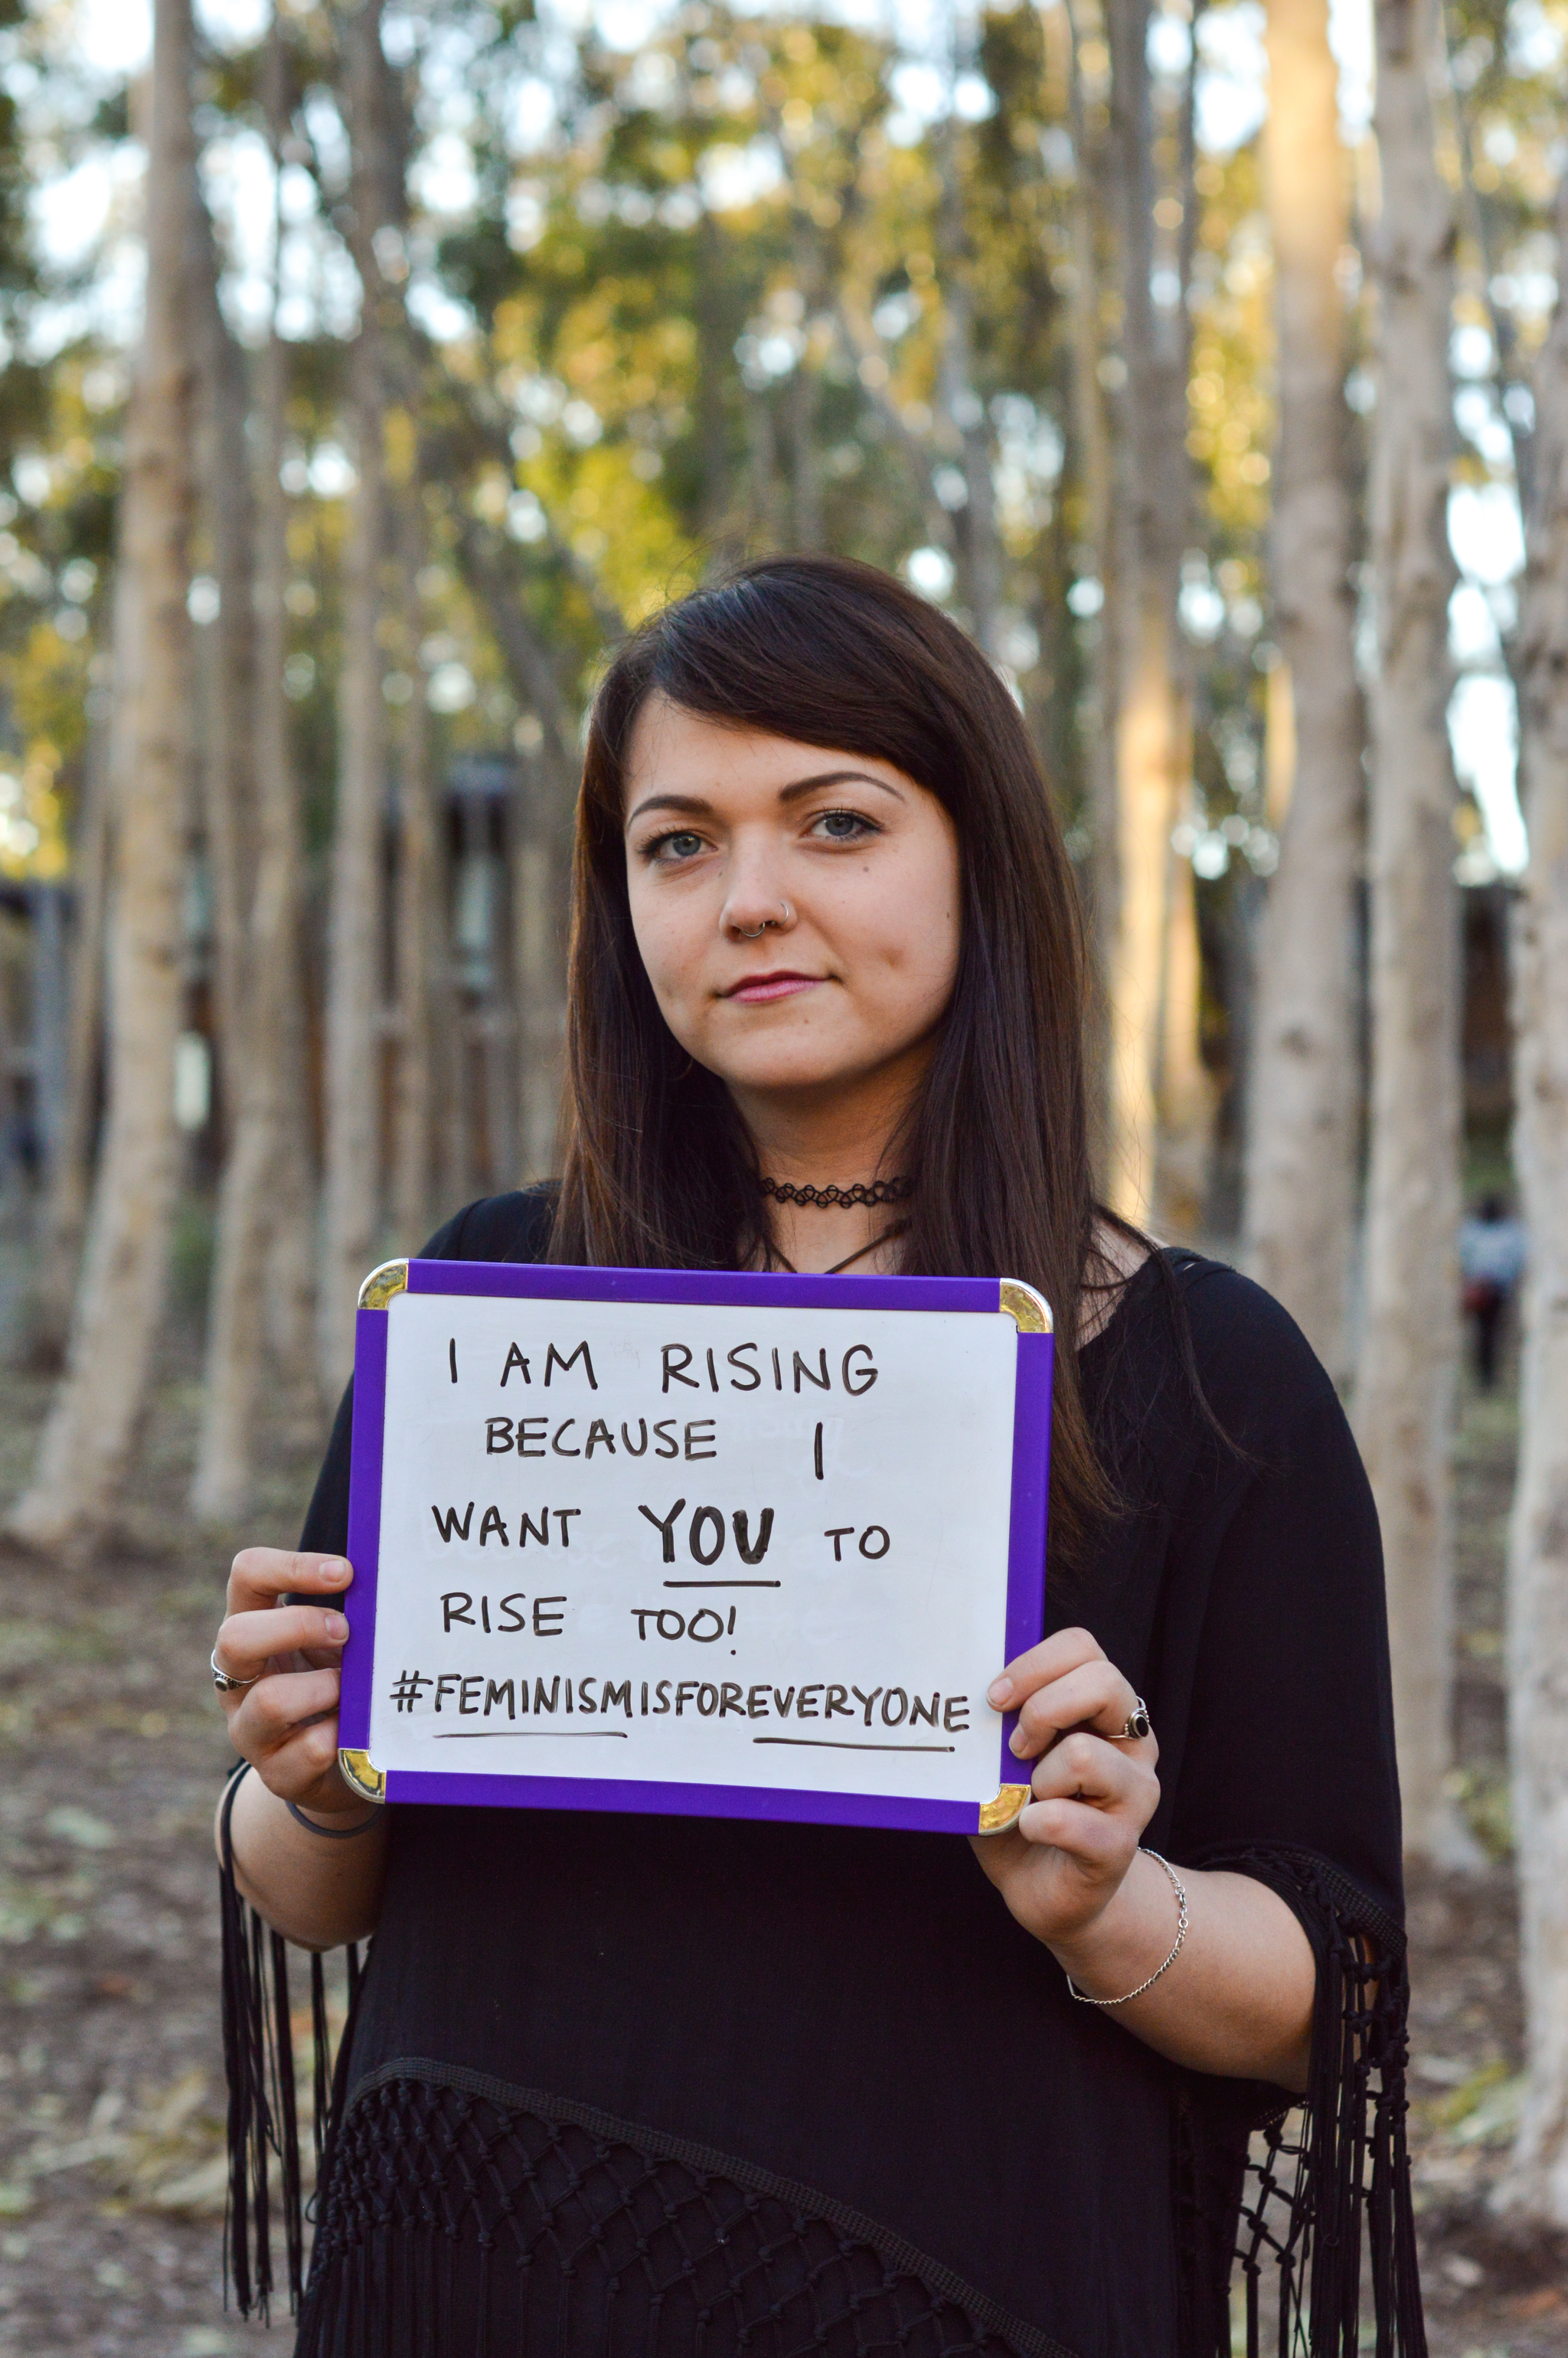 I AM RISING
BECAUSE I
WANT YOU TO
RISE TOO!
#FEMINISMISFOREVERYONE